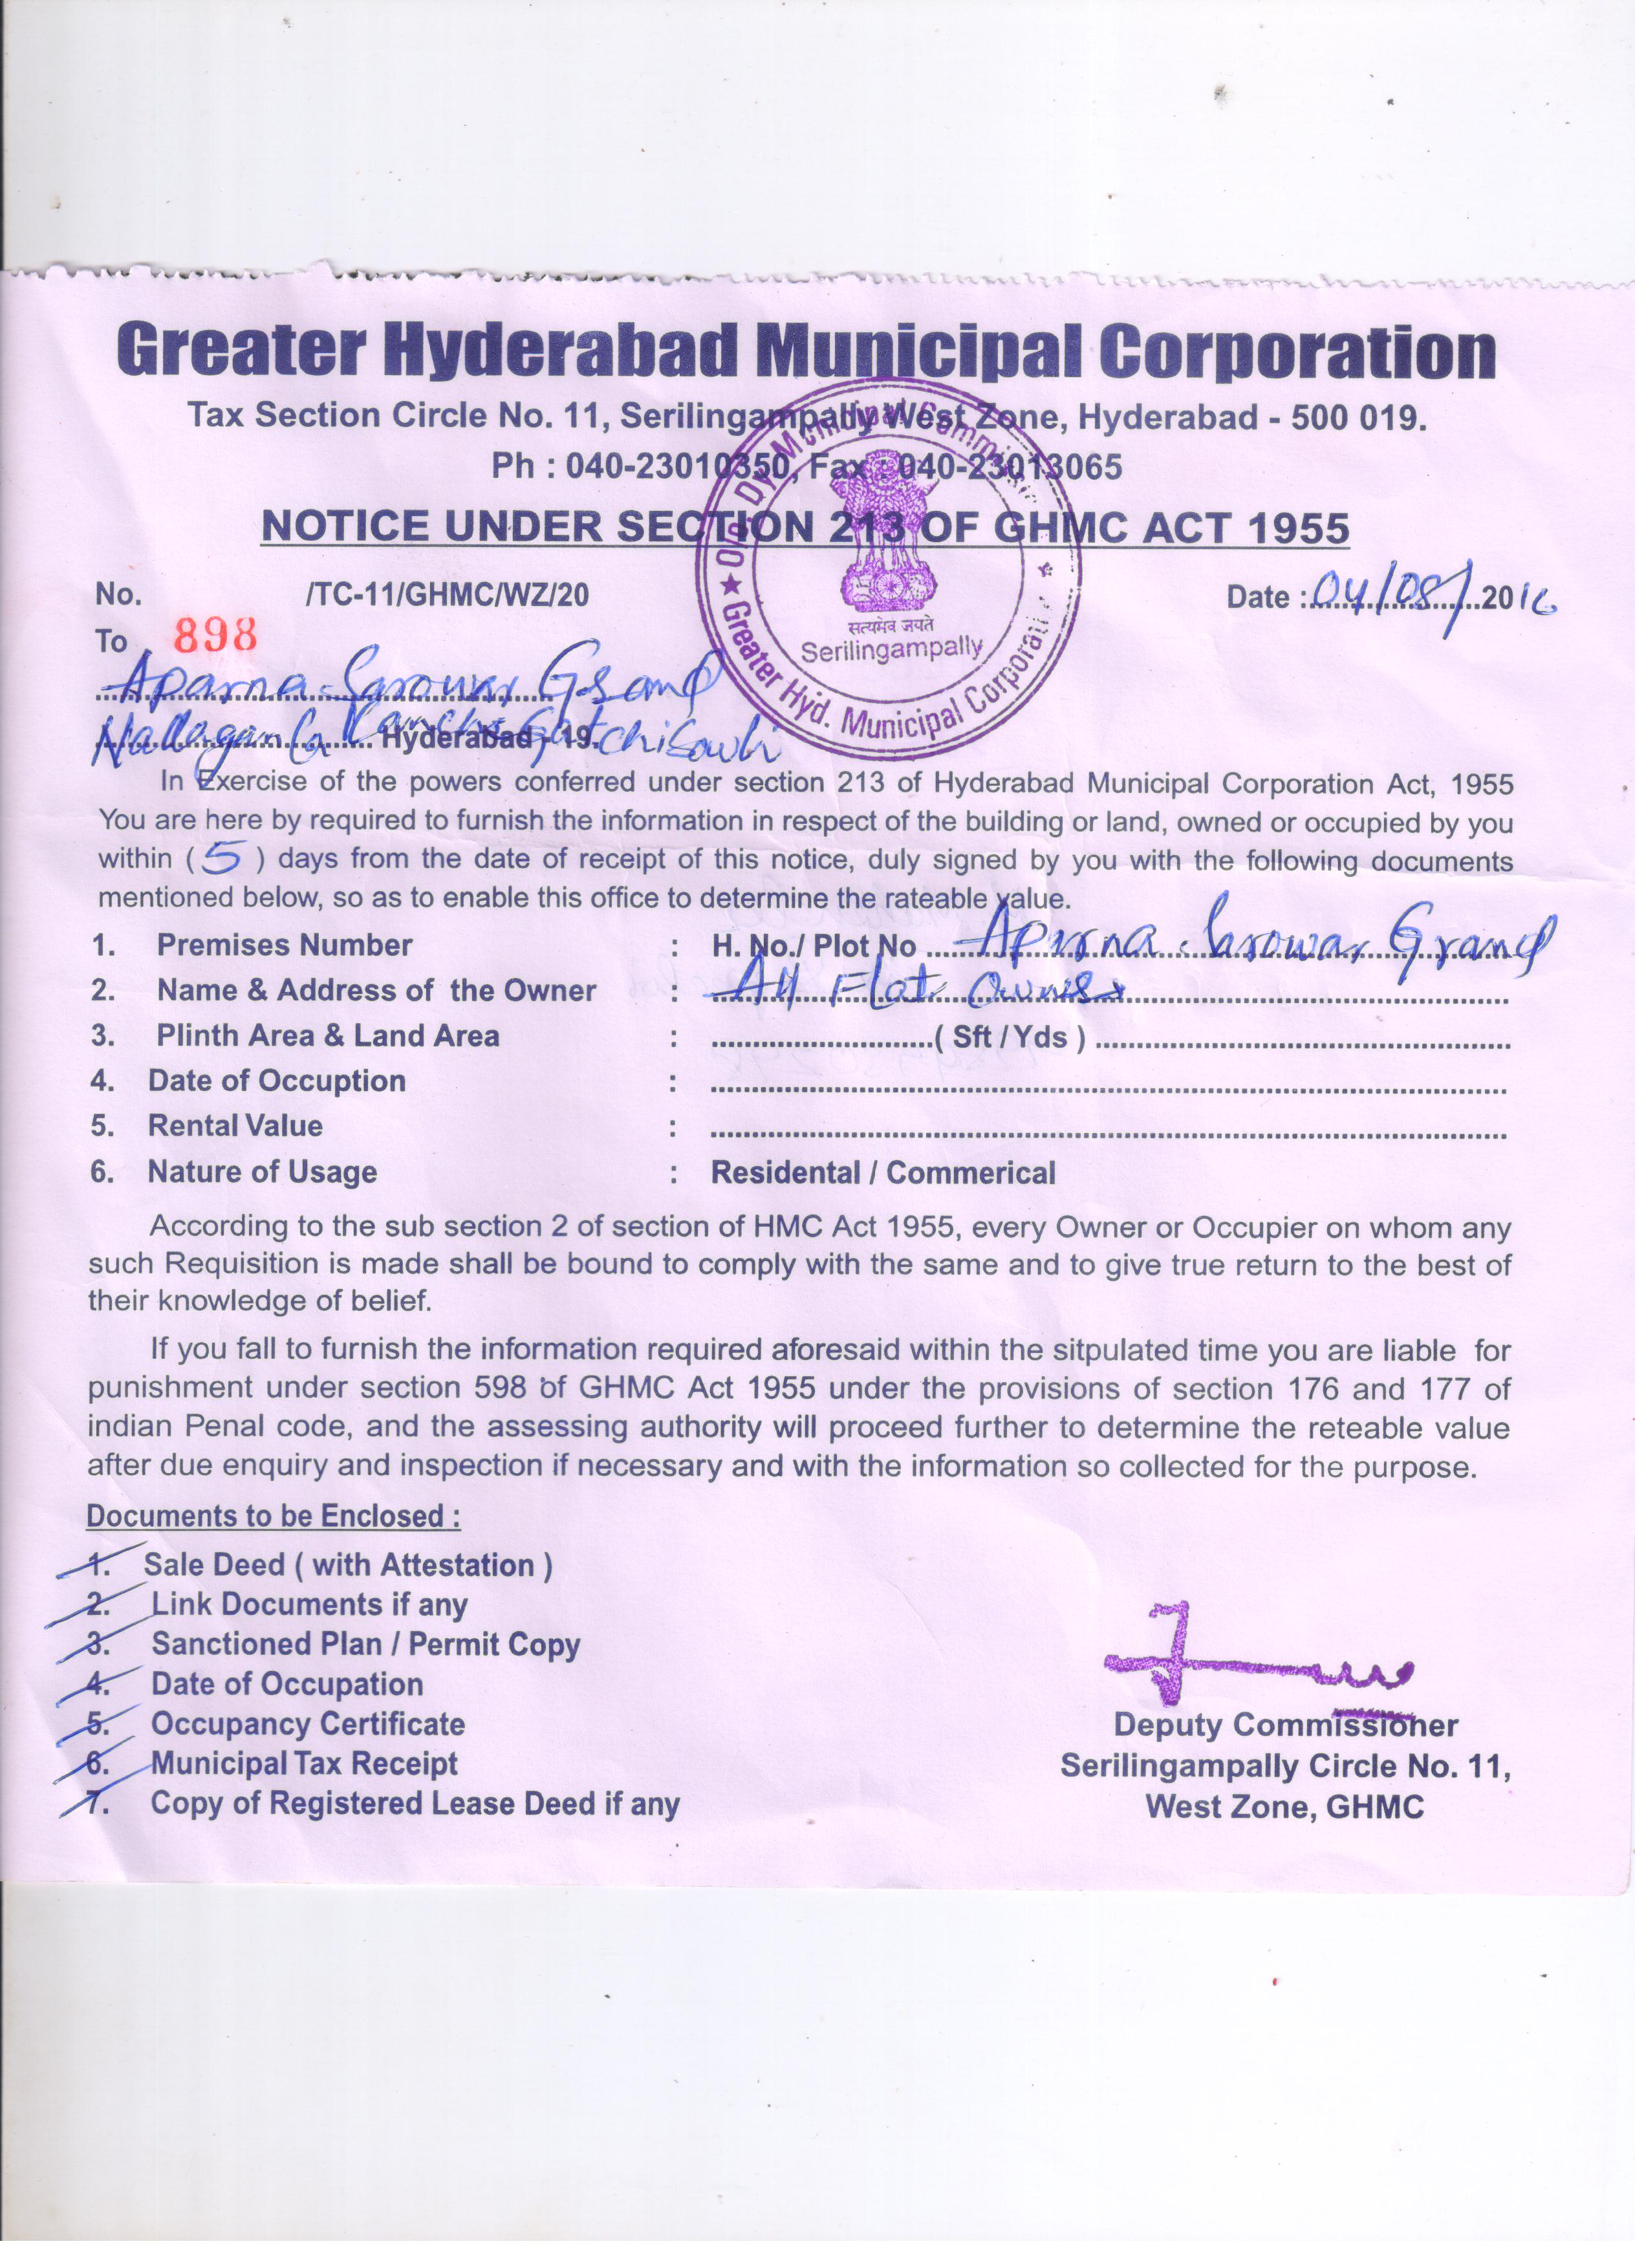 Greater Hyderabad Municipal Corporation
Tax Section Circle No. 11, Serilingampally West Zone, Hyderabad - 500 019.
Ph : 040-23010350, Fax : 040-23013065
NOTICE UNDER SECTION 213 OF GHMC ACT 1955
O/o. Dy. Municipal Commissioner
★ Greater Hyd. Municipal Corporation ★
सत्यमेव जयते
Serilingampally
No. /TC-11/GHMC/WZ/20 Date : 04/08/2016
To 898
Aparna Sarowar Grand
Nallagandla Kancha Gatchibowli Hyderabad - 19.
In Exercise of the powers conferred under section 213 of Hyderabad Municipal Corporation Act, 1955
You are here by required to furnish the information in respect of the building or land, owned or occupied by you
within ( 5 ) days from the date of receipt of this notice, duly signed by you with the following documents
mentioned below, so as to enable this office to determine the rateable value.
1. Premises Number : H. No./ Plot No Aparna Sarowar Grand
2. Name & Address of the Owner : All Flat Owners
3. Plinth Area & Land Area : ( Sft / Yds )
4. Date of Occuption :
5. Rental Value :
6. Nature of Usage : Residental / Commerical
According to the sub section 2 of section of HMC Act 1955, every Owner or Occupier on whom any
such Requisition is made shall be bound to comply with the same and to give true return to the best of
their knowledge of belief.
If you fall to furnish the information required aforesaid within the sitpulated time you are liable for
punishment under section 598 of GHMC Act 1955 under the provisions of section 176 and 177 of
indian Penal code, and the assessing authority will proceed further to determine the reteable value
after due enquiry and inspection if necessary and with the information so collected for the purpose.
Documents to be Enclosed :
1. Sale Deed ( with Attestation )
2. Link Documents if any
3. Sanctioned Plan / Permit Copy
4. Date of Occupation
5. Occupancy Certificate
6. Municipal Tax Receipt
7. Copy of Registered Lease Deed if any
Deputy Commissioner
Serilingampally Circle No. 11,
West Zone, GHMC